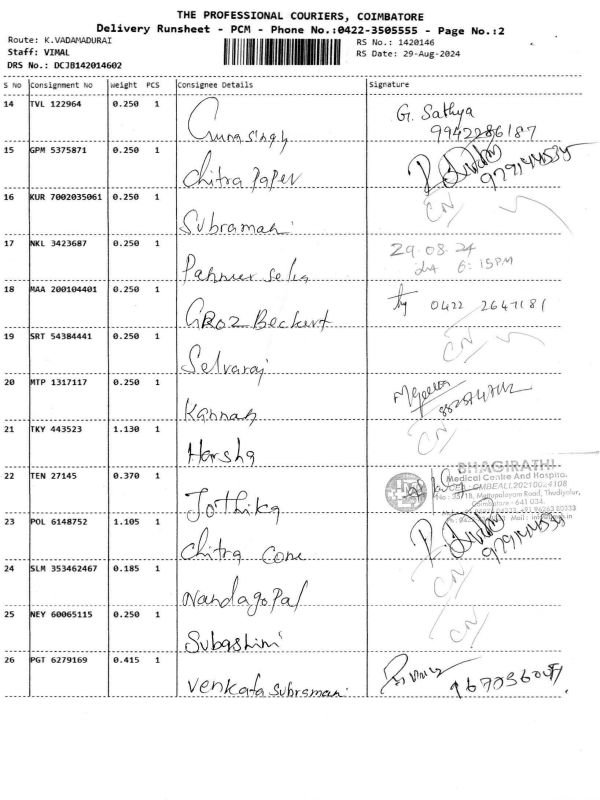 THE PROFESSIONAL COURIERS, COIMBATORE
Delivery Runsheet - PCM - Phone No.:0422-3505555 - Page No.:2
Route: K.VADAMADURAI
RS No.: 1420146
Staff: VIMAL
RS Date: 29-Aug-2024
DRS No.: DCJB142014602
S No Consignment No Weight PCS Consignee Details Signature
14 TVL 122964 0.250 1
G. Sathya
9942286187
15 GPM 5375871 0.250 1
Chitra Paper
16 KUR 7002035061 0.250 1
CN
Subramani
17 NKL 3423687 0.250 1
29.08.24
6:15PM
18 MAA 200104401 0.250 1
0422 2647181
GROZ Beckert
19 SRT 54384441 0.250 1
CN
Selvaraj
20 MTP 1317117 0.250 1
Kannan
21 TKY 443523 1.130 1
CN
Harsha
BHAGIRATHI
22 TEN 27145 0.370 1
Medical Centre And Hospital
Mettupalayam Road, Thudiyalur,
Coimbatore - 641 034.
Jothika
23 POL 6148752 1.105 1
Chitra Cone
24 SLM 353462467 0.185 1
CN
Nandagopal
25 NEY 60065115 0.250 1
CN
Subashini
26 PGT 6279169 0.415 1
Venkata Subramani